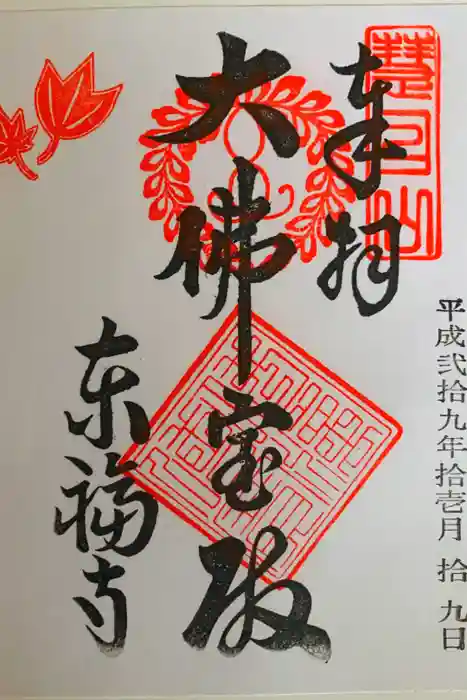 奉拝
慧日山
平成弐拾九年拾壱月 拾九日
大佛宝殿
东福寺